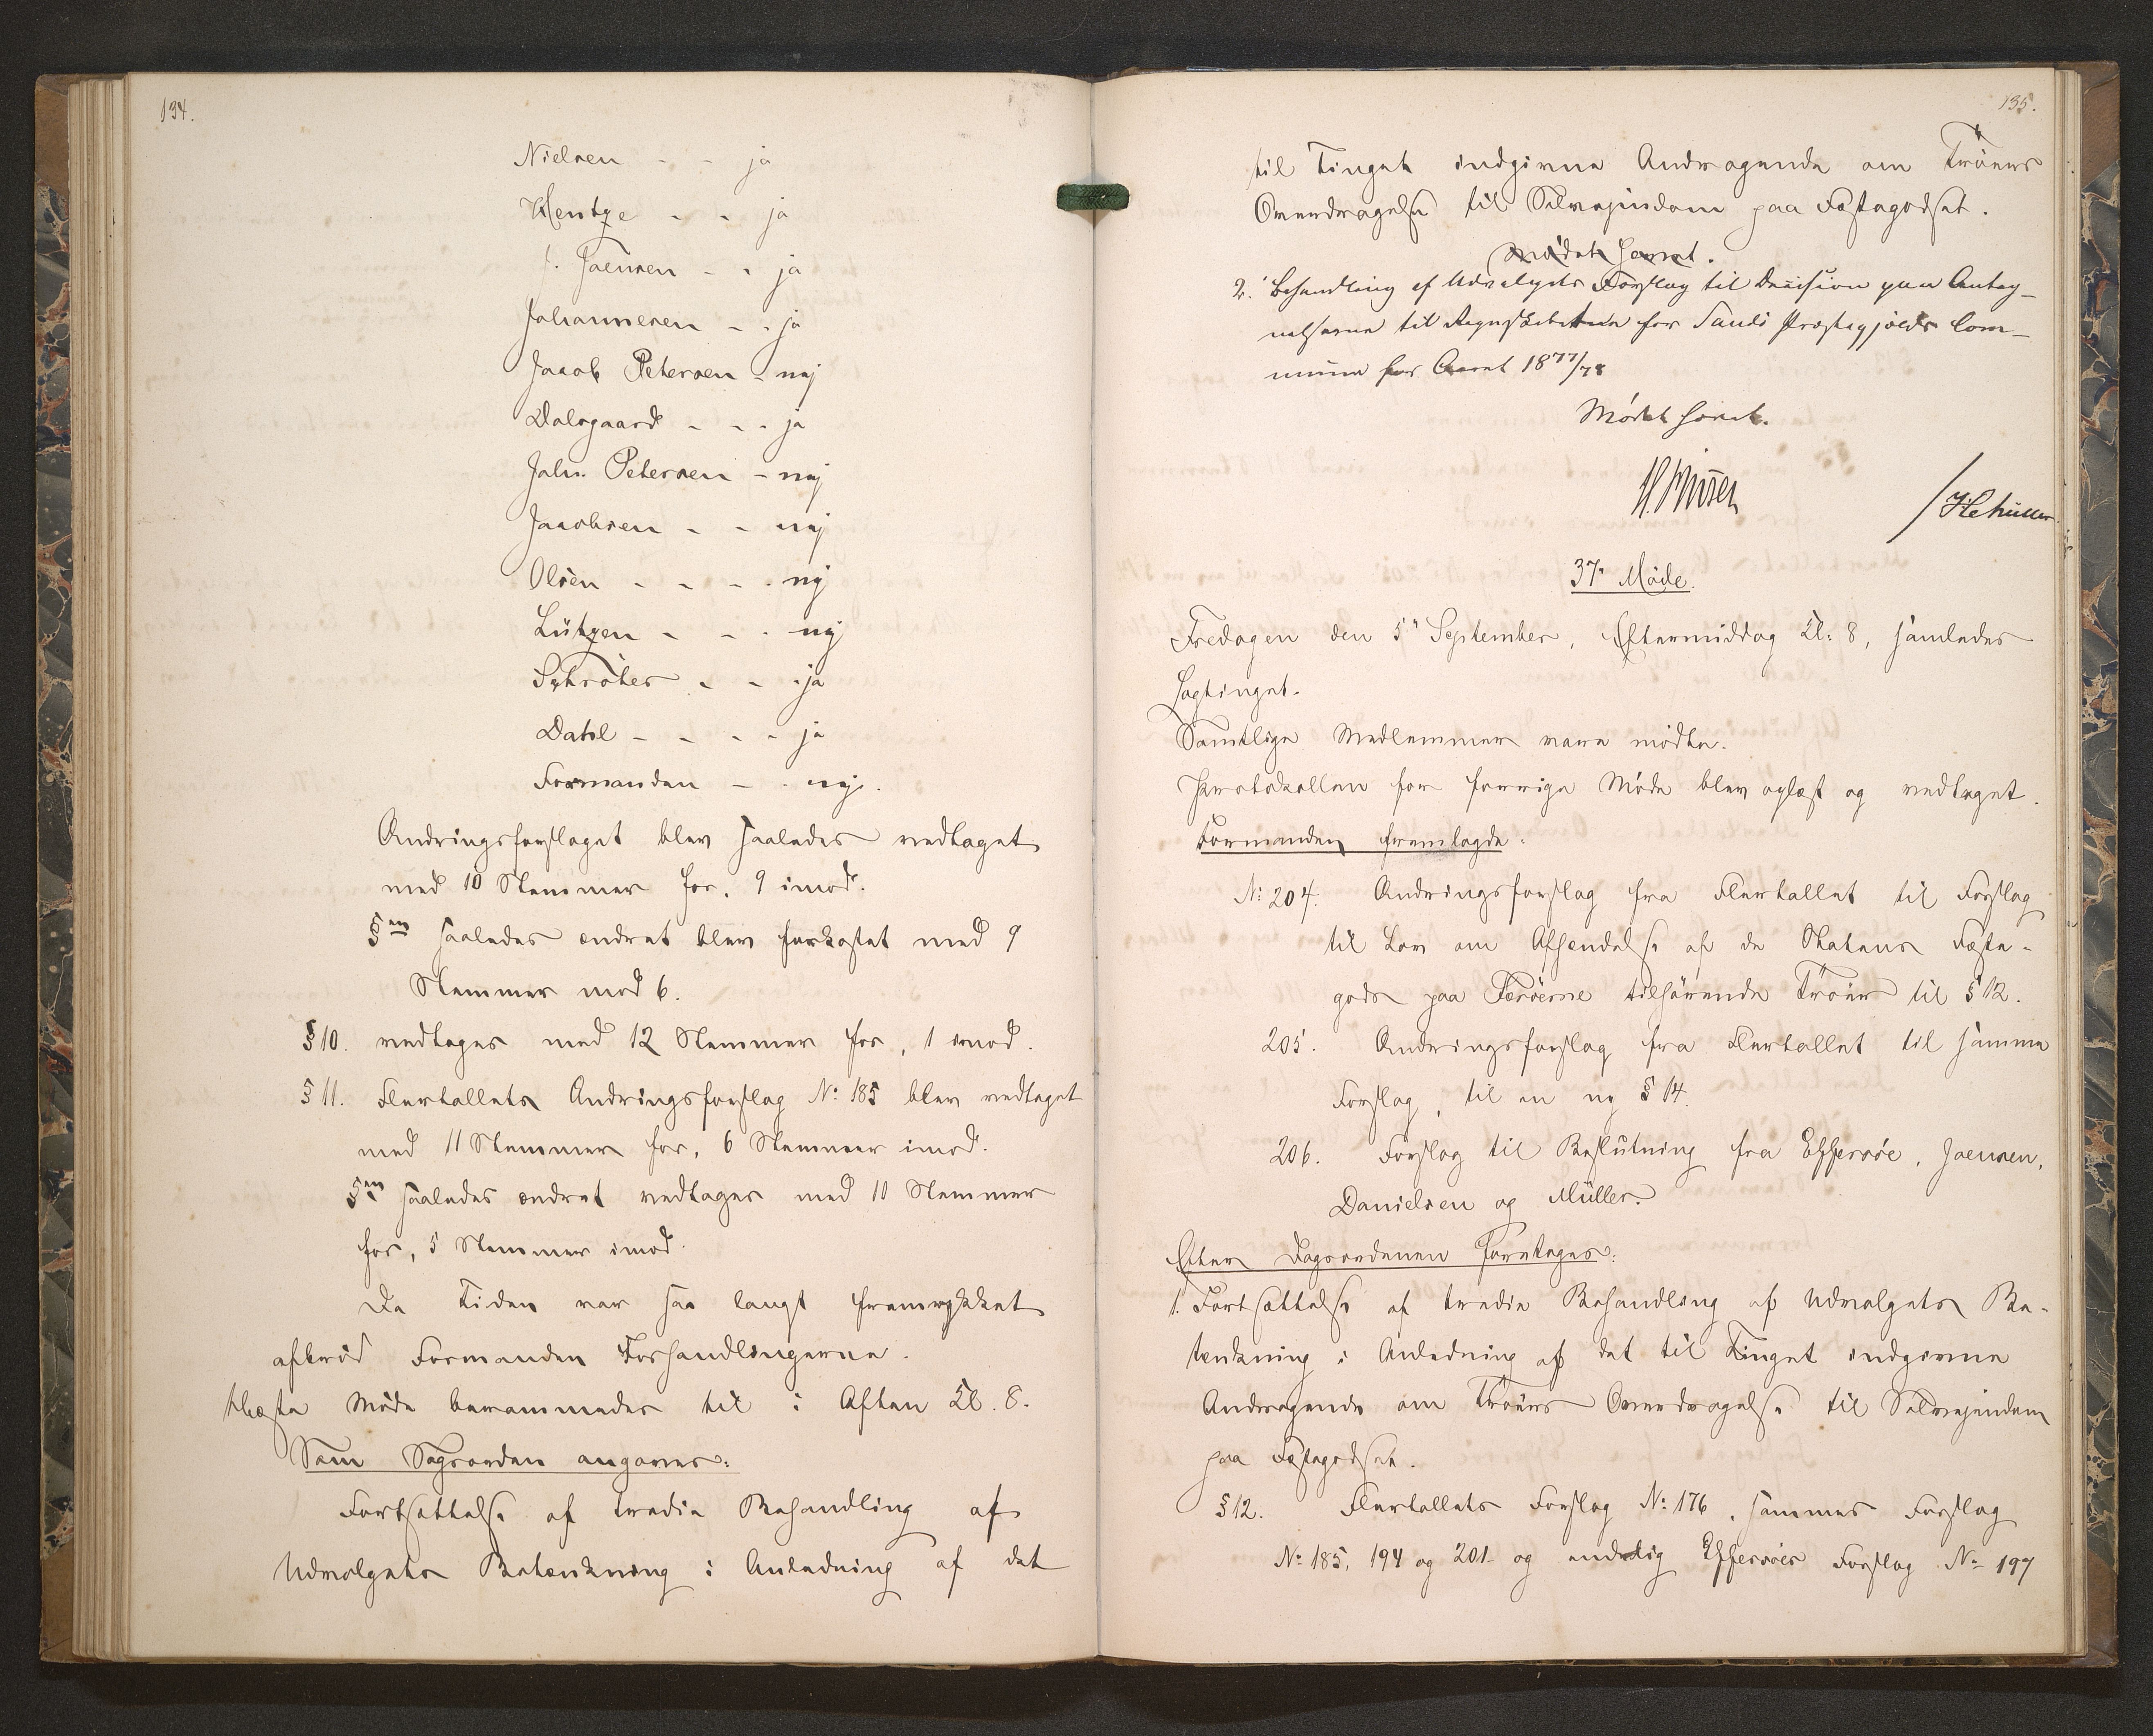 134.
Nielsen - - ja
Hentze - - ja
J. Joensen - - ja
Johannesen - - ja
Jacob Petersen - nej
Dalsgaard - - - ja
Johs. Petersen - nej
Jacobsen - - nej
Olsen - - - - nej
Lützen - - - nej
Schröter - - - ja
Dahl - - - - ja
Formanden - - nej.
Ændringsforslaget blev saaledes vedtaget
med 10 Stemmer for, 9 imod.
§en saaledes ændret blev forkastet med 9
Stemmer mod 6.
§ 10. vedtages med 12 Stemmer for, 1 imod.
§ 11. Flertallets Ændringsforslag No 185 blev vedtaget
med 11 Stemmer for, 6 Stemmer imod.
§en saaledes ændret vedtages med 10 Stemmer
for, 5 Stemmer imod.
Da Tiden var saa langt fremrykket
afbrød Formanden Forhandlingerne.
Næste Møde berammedes til i Aften Kl. 8.
Som Dagsorden angaves:
Fortsættelse af tredie Behandling af
Udvalgets Betænkning i Anledning af det
135.
til Tinget indgivne Andragende om Trøers
Overdragelse til Selvejendom paa Fæstegodset.
Mødet hævet.
2. Behandling af Udvalgets Forslag til Decision paa Anteg-
nelserne til Regnskaberne for Sandø Præstegjælds Com-
mune for Aaret 1877/78
Mødet hævet.
/H. C. Müller
37te Møde.
Fredagen den 5te September, Eftermiddag Kl: 8, samledes
Lagtinget.
Samtlige Medlemmer vare mødte.
Protokollen for forrige Møde blev oplæst og vedtaget.
Formanden fremlagde:
No: 204. Ændringsforslag fra Flertallet til Forslag
til Lov om Afhændelse af de Statens Fæste-
gods paa Færøerne tilhørende Trøer til § 12.
205. Ændringsforslag fra Flertallet til samme
Forslag, til en ny § 14.
206. Forslag til Beslutning fra Effersøe, Joensen,
Danielsen og Müller.
Efter Dagsordenen foretages:
1. Fortsættelse af tredie Behandling af Udvalgets Be-
tænkning i Anledning af det til Tinget indgivne
Andragende om Trøers Overdragelse til Selvejendom
paa Fæstegodset.
§ 12. Flertallets Forslag No: 176, sammes Forslag
No 185, 194 og 201 og endelig Effersøes Forslag No 197